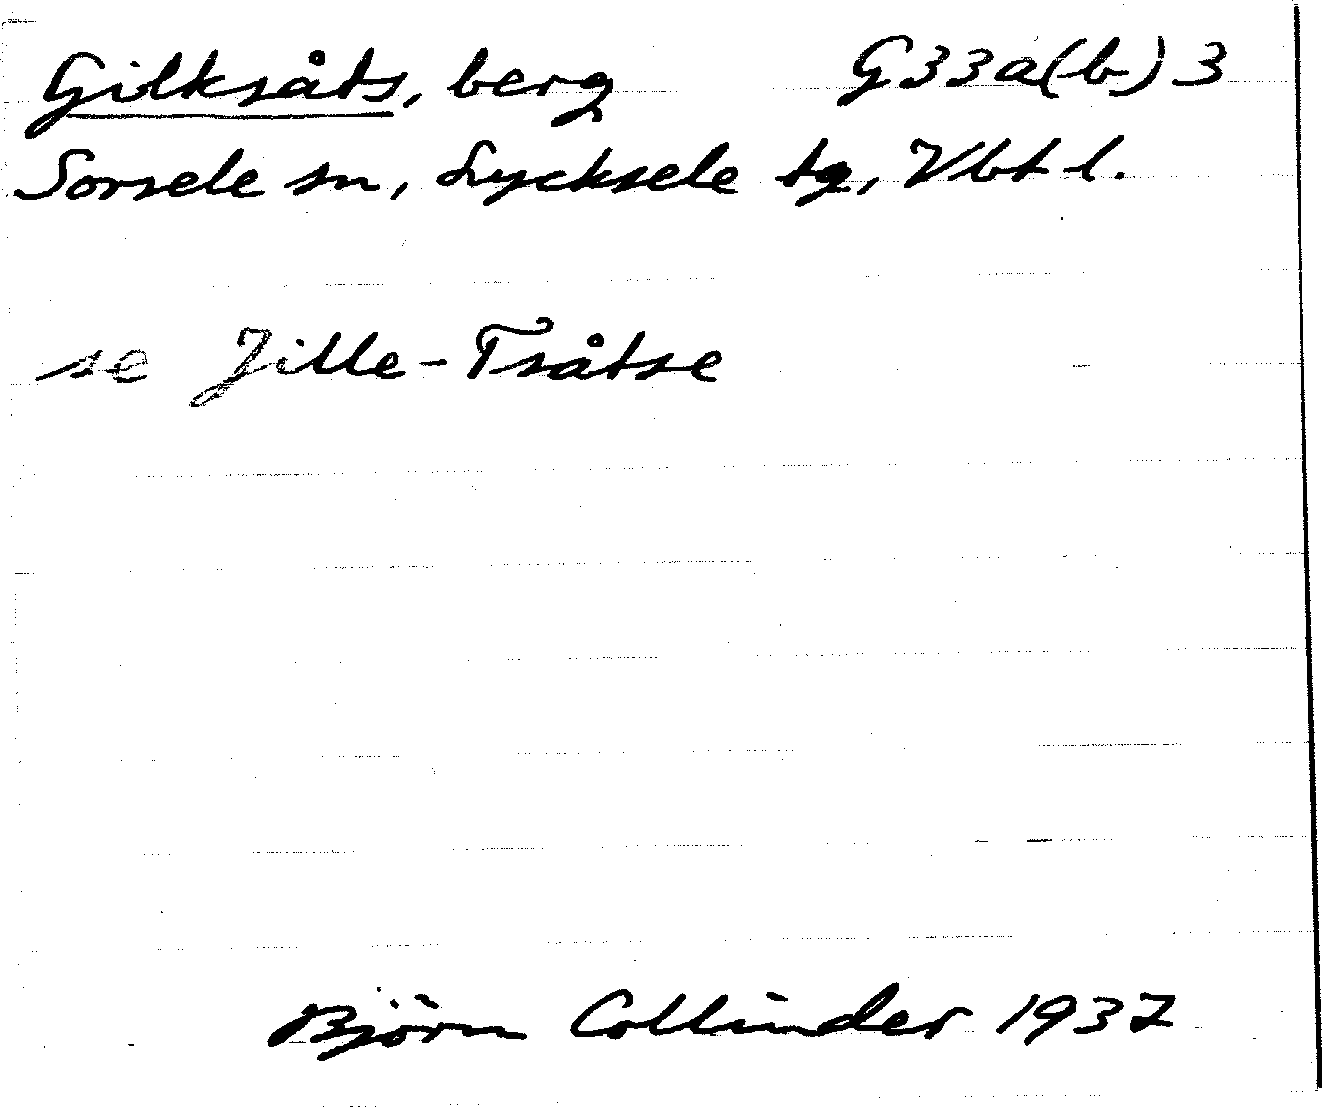 Gilksåts, berg G33a(b)3
Sorsele sn, Lycksele tg, Vbtl.
se Jille-Tsåtse
Björn Collinder 1937